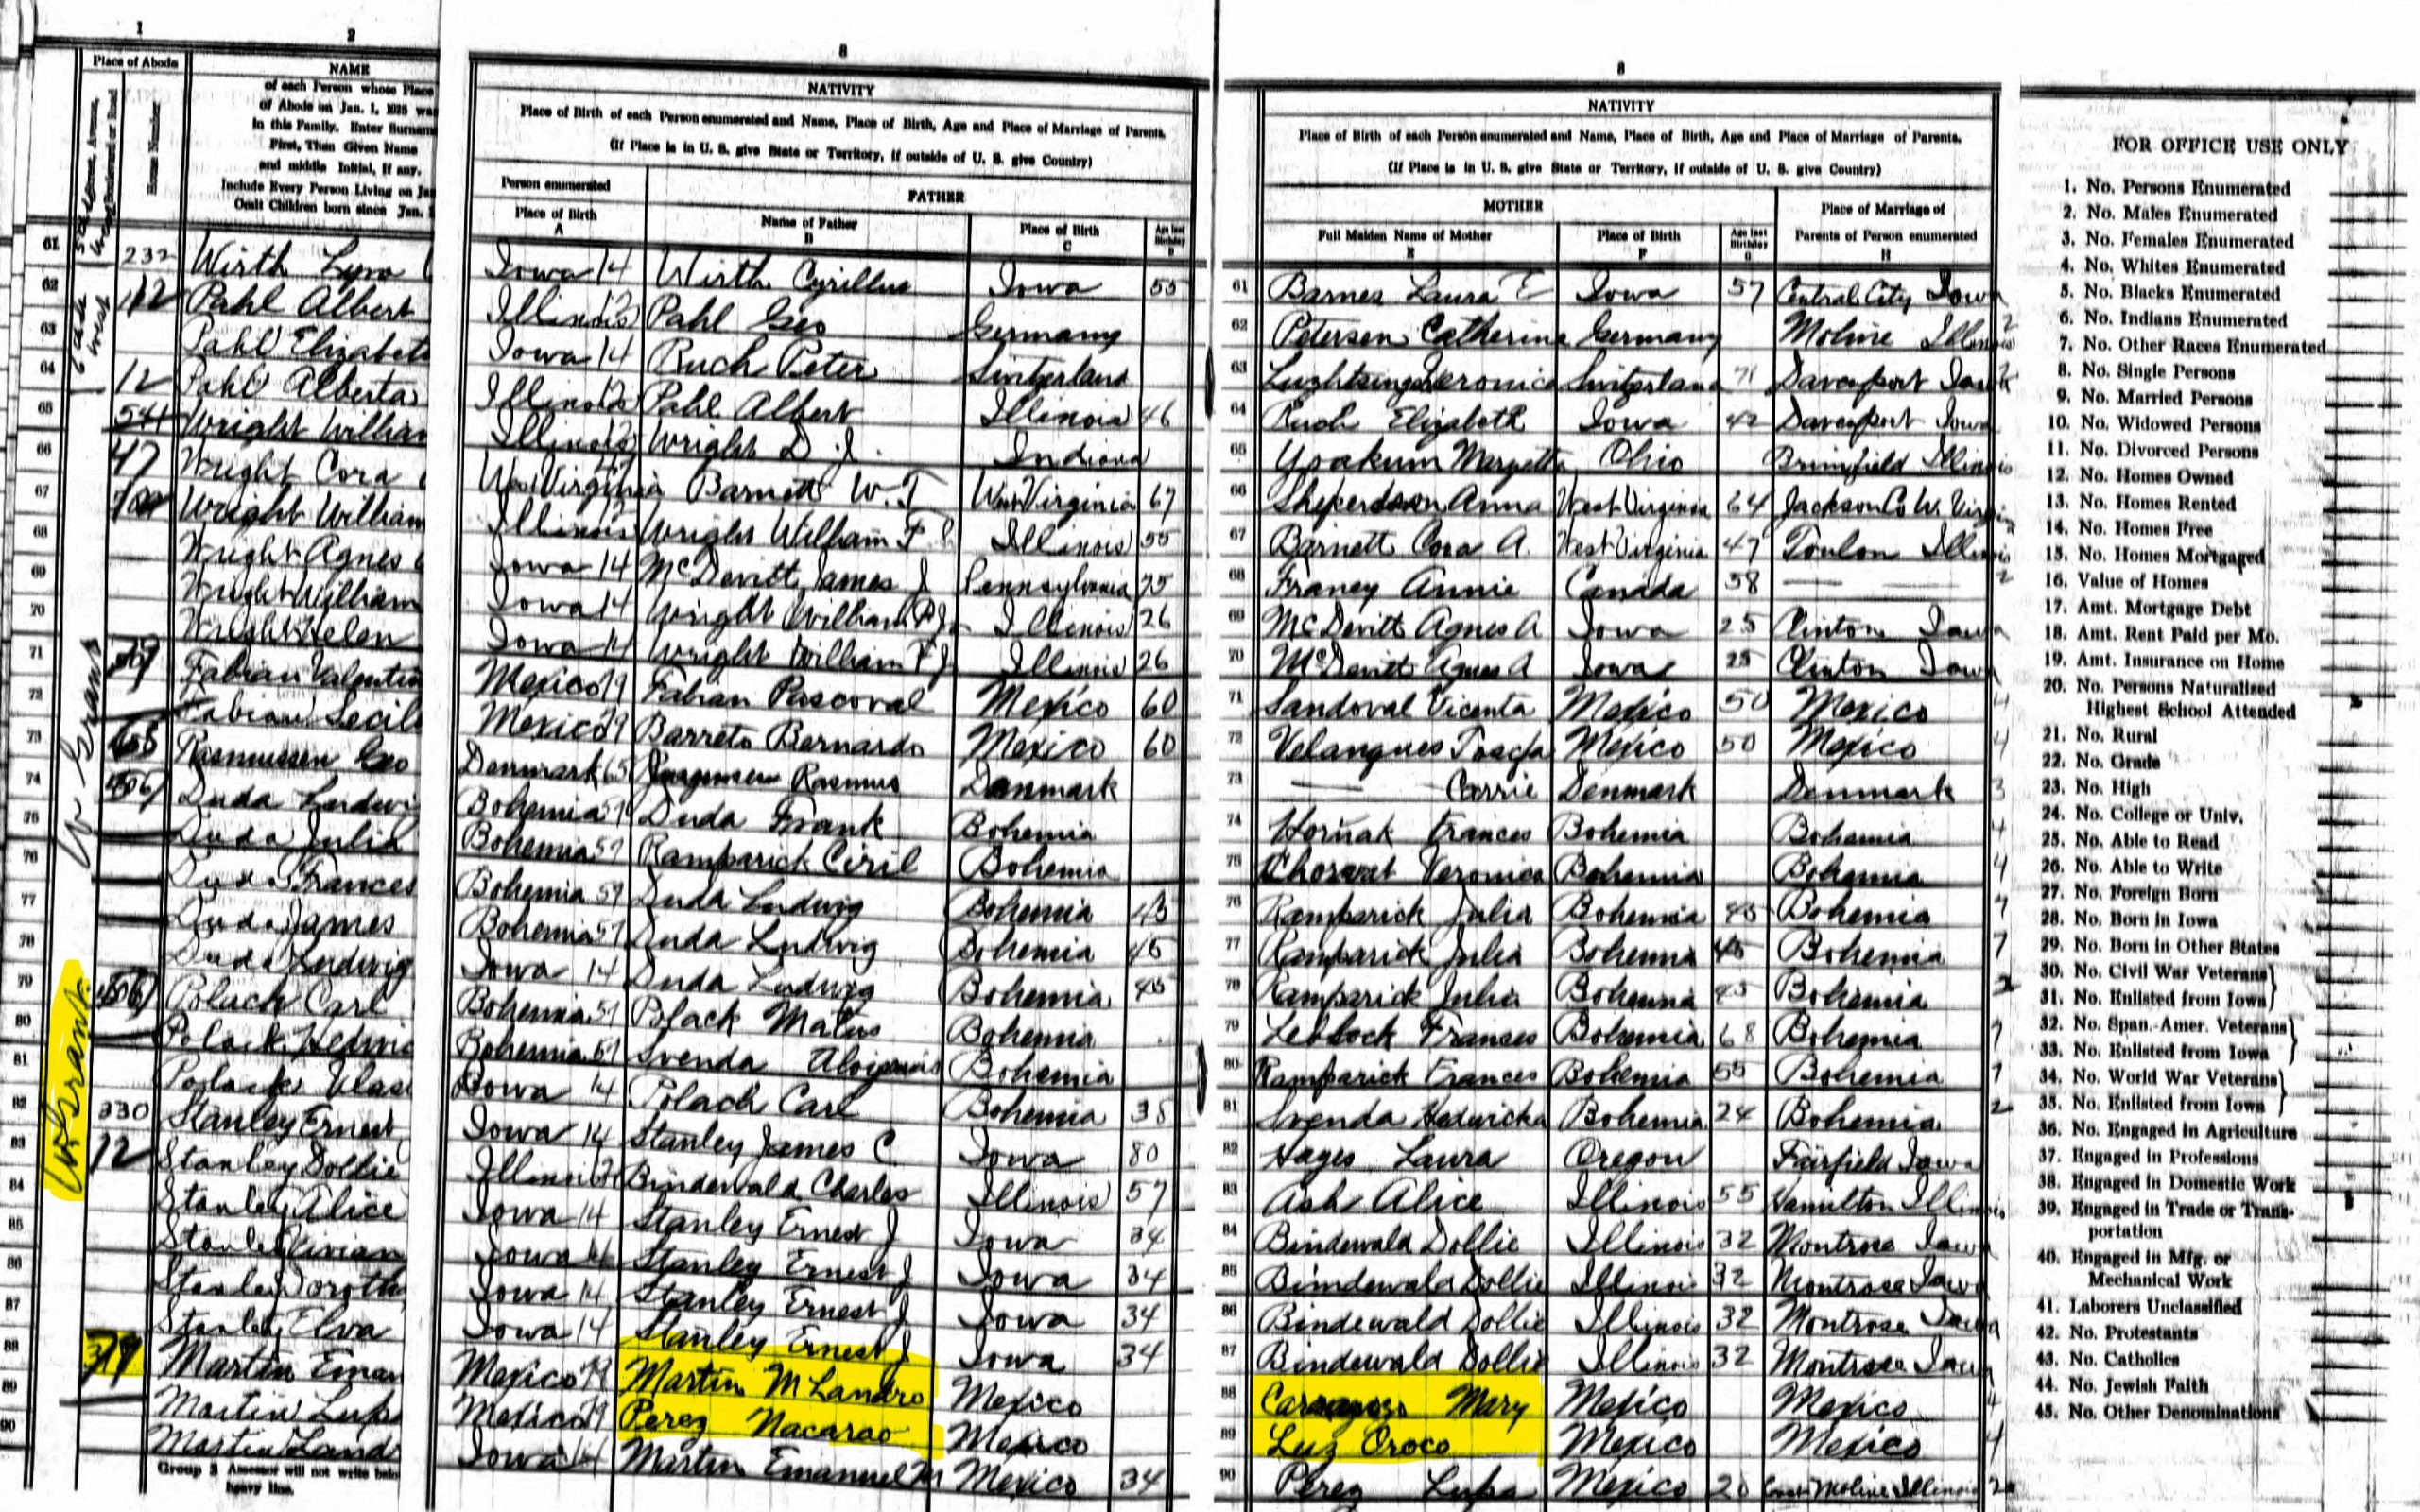 1
2
Place of Abode
NAME
of each Person whose Place
of Abode on Jan. 1, 1925 was
in this Family. Enter Surname
First, Then Given Name
and middle Initial, if any.
Include Every Person Living on Jan
Omit Children born since Jan.
House Number
61 232 Wirth Lyra
62 112 Pahl Albert
63 Pahl Elizabeth
64 12 Pahl Alberta
65 541 Wright William
66 47 Wright Cora
67 Wright William
68 Wright Agnes
69 Wright William
70 Wright Helen
71 Fabian Valentin
72 Fabian Secil
73 Rasmussen Geo
74 Duda Ludwi
75 Duda Julia
76 Duda Frances
77 Duda James
78 Duda Ludwig
79 Polach Carl
80 Polack Hedwic
81 Polack Vlas
82 330 Stanley Ernest
83 12 Stanley Dollie
84 Stanley Alice
85 Stanley Vivian
86 Stanley Doroth
87 Stanley Elva
88 319 Martin Eman
89 Martin Lup
90 Martin Land
W Grant
W Grant
Group 3 Assessor will not write below
heavy line.
8
NATIVITY
Place of Birth of each Person enumerated and Name, Place of Birth, Age and Place of Marriage of Parents.
(If Place is in U. S. give State or Territory, if outside of U. S. give Country)
Person enumerated
FATHER
Place of Birth
A
Name of Father
B
Place of Birth
C
Age last Birthday
D
Iowa 14 Wirth Cyrillus Iowa 55
Illinois 12 Pahl Geo Germany
Iowa 14 Ruch Peter Switzerland
Illinois 12 Pahl Albert Illinois 46
Illinois 12 Wright D. J. Indiana
West Virginia Barnett W. T West Virginia 67
Illinois Wright William F Illinois 55
Iowa 14 McDevitt James J Pennsylvania 75
Iowa 14 Wright William F Jr Illinois 26
Iowa 14 Wright William F Jr Illinois 26
Mexico 79 Fabian Pascoval Mexico 60
Mexico 79 Barreto Bernardo Mexico 60
Denmark 65 Rasmus Danmark
Bohemia 57 Duda Frank Bohemia
Bohemia 57 Ramparick Ciril Bohemia
Bohemia 57 Duda Ludwig Bohemia 45
Bohemia 57 Duda Ludwig Bohemia 45
Iowa 14 Duda Ludwig Bohemia 45
Bohemia 57 Polack Bohemia
Bohemia 57 Svenda Bohemia
Iowa 14 Polach Carl Bohemia 38
Iowa 14 Stanley James C Iowa 80
Illinois Bindewald Charles Illinois 57
Iowa 14 Stanley Ernest J Iowa 34
Iowa 14 Stanley Ernest J Iowa 34
Iowa 14 Stanley Ernest J Iowa 34
Iowa 14 Stanley Ernest J Iowa 34
Mexico 79 Martin M Landro Mexico
Mexico 79 Perez Nacarao Mexico
Iowa 14 Martin Emanuel M Mexico 34
8
NATIVITY
Place of Birth of each Person enumerated and Name, Place of Birth, Age and Place of Marriage of Parents.
(If Place is in U. S. give State or Territory, if outside of U. S. give Country)
MOTHER
Full Maiden Name of Mother
E
Place of Birth
F
Age last Birthday
G
Place of Marriage of
Parents of Person enumerated
H
61 Barnes Laura E Iowa 57 Central City Iowa
62 Petersen Catherine Germany Moline Illinois
63 Veronica Switzerland 71 Davenport Iowa
64 Ruch Elizabeth Iowa 42 Davenport Iowa
65 Yoakum Margetta Ohio Brimfield Illinois
66 Sheperdson Anna West Virginia 64 Jackson Co W. Virginia
67 Barnett Cora A. West Virginia 47 Toulon Illinois
68 Franey Annie Canada 58
69 McDevitt Agnes A Iowa 25 Clinton Iowa
70 McDevitt Agnes A Iowa 25 Clinton Iowa
71 Sandoval Vicenta Mexico 50 Mexico 4
72 Velangues Mexico 50 Mexico 4
73 Carrie Denmark Denmark 3
74 Hornak Frances Bohemia Bohemia 4
75 Veronica Bohemia Bohemia 4
76 Ramparick Julia Bohemia 45 Bohemia 7
77 Ramparick Julia Bohemia 45 Bohemia 7
78 Ramparick Julia Bohemia 45 Bohemia 2
79 Frances Bohemia 68 Bohemia 7
80 Ramparick Frances Bohemia 55 Bohemia 7
81 Svenda Hedwicka Bohemia 24 Bohemia 2
82 Hayes Laura Oregon Fairfield Iowa
83 Ash Alice Illinois 55 Hamilton Illinois
84 Bindewald Dollie Illinois 32 Montrose Iowa
85 Bindewald Dollie Illinois 32 Montrose Iowa
86 Bindewald Dollie Illinois 32 Montrose Iowa
87 Bindewald Dollie Illinois 32 Montrose Iowa
88 Mary Mexico Mexico 4
89 Luz Oroco Mexico Mexico 4
90 Perez Lupa Mexico 20 Moline Illinois
FOR OFFICE USE ONLY
1. No. Persons Enumerated
2. No. Males Enumerated
3. No. Females Enumerated
4. No. Whites Enumerated
5. No. Blacks Enumerated
6. No. Indians Enumerated
7. No. Other Races Enumerated
8. No. Single Persons
9. No. Married Persons
10. No. Widowed Persons
11. No. Divorced Persons
12. No. Homes Owned
13. No. Homes Rented
14. No. Homes Free
15. No. Homes Mortgaged
16. Value of Homes
17. Amt. Mortgage Debt
18. Amt. Rent Paid per Mo.
19. Amt. Insurance on Home
20. No. Persons Naturalized
Highest School Attended
21. No. Rural
22. No. Grade
23. No. High
24. No. College or Univ.
25. No. Able to Read
26. No. Able to Write
27. No. Foreign Born
28. No. Born in Iowa
29. No. Born in Other States
30. No. Civil War Veterans
31. No. Enlisted from Iowa
32. No. Span.-Amer. Veterans
33. No. Enlisted from Iowa
34. No. World War Veterans
35. No. Enlisted from Iowa
36. No. Engaged in Agriculture
37. Engaged in Professions
38. Engaged in Domestic Work
39. Engaged in Trade or Trans-
portation
40. Engaged in Mfg. or
Mechanical Work
41. Laborers Unclassified
42. No. Protestants
43. No. Catholics
44. No. Jewish Faith
45. No. Other Denominations